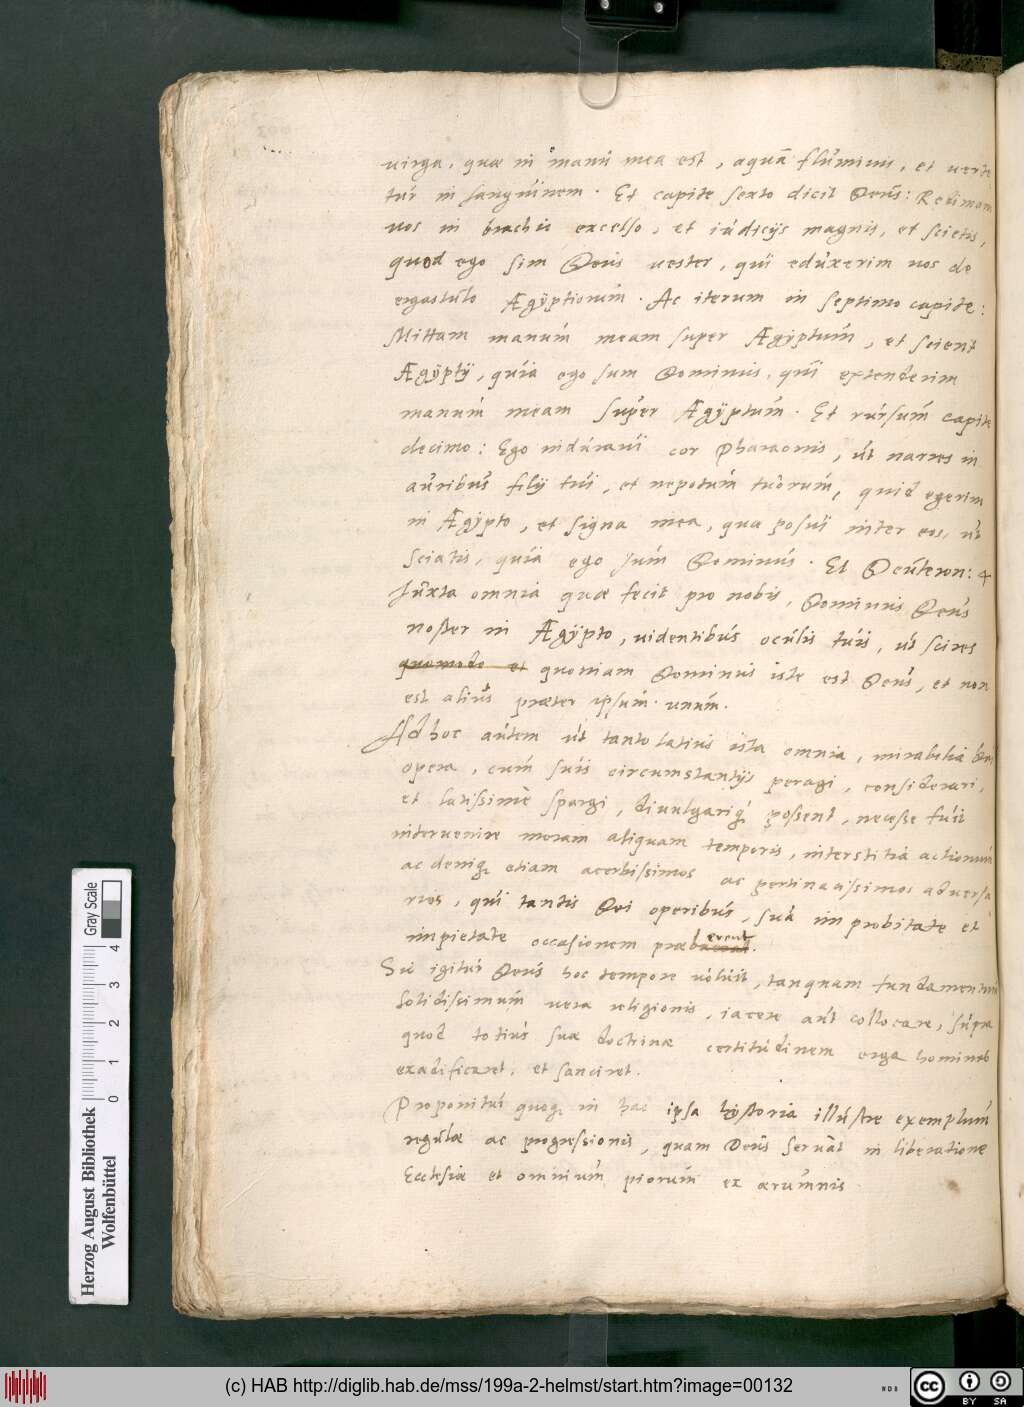 uirga, quae in manu mea est, aquā fluminis, et verte
tur in sanguinem. Et capite sexto dicit Deus: Redimam
uos in brachio excelso, et iudicijs magnis, et scietis,
quod ego sim Deus uester, qui eduxerim uos de
ergastulo Ægÿptiorum. Ac iterum in septimo capite:
Mittam manum meam super Ægÿptum, et scient
Ægÿptij, quia ego sum Dominus, qui extenderim
manum meam super Ægÿptum. Et rursum capite
decimo: Ego induraui cor Pharaonis, ut narres in
auribus filij tui, et nepotum tuorum, quid egerim
in Ægÿpto, et signa mea, quae posui inter eos, ut
sciatis, quia ego sum Dominus. Et Deuteron: 4
Juxta omnia quae fecit pro nobis, Dominus Deus
noster in Ægÿpto, uidentibus oculis tuis, ut scires
quomodo et quoniam Dominus iste est Deus, et non
est alius praeter ipsum unum.
Ad hoc autem ut tanto latius ista omnia, mirabilia Dei
opera, cum suis circumstantijs peragi, considerari,
et latissimè spargi, diuulgariq́ possent, necesse fuit
interuenire moram aliquam temporis, interstitia actionum
ac deniq, etiam acerbissimos ac pertinacissimos aduersa
rios, qui tantis Dei operibus, sua improbitate et
impietate occasionem praeberent.
Sic igitur Deus hoc tempore uoluit, tanquam fundamentum
solidissimum uera religionis, iacere aut collocare, supra
quod totius suae doctrinae certitudinem erga homines
exadificaret, et sanciret.
Proponitur quoq, in hac ipsa hÿstoria illustre exemplum
regulae ac progressionis, quam Deus seruat in liberatione
Ecclesiae et omnium piorum ex aerumnis
Herzog August Bibliothek
Wolfenbüttel
0 1 2 3 4
Gray Scale
(c) HAB http://diglib.hab.de/mss/199a-2-helmst/start.htm?image=00132
cc BY SA